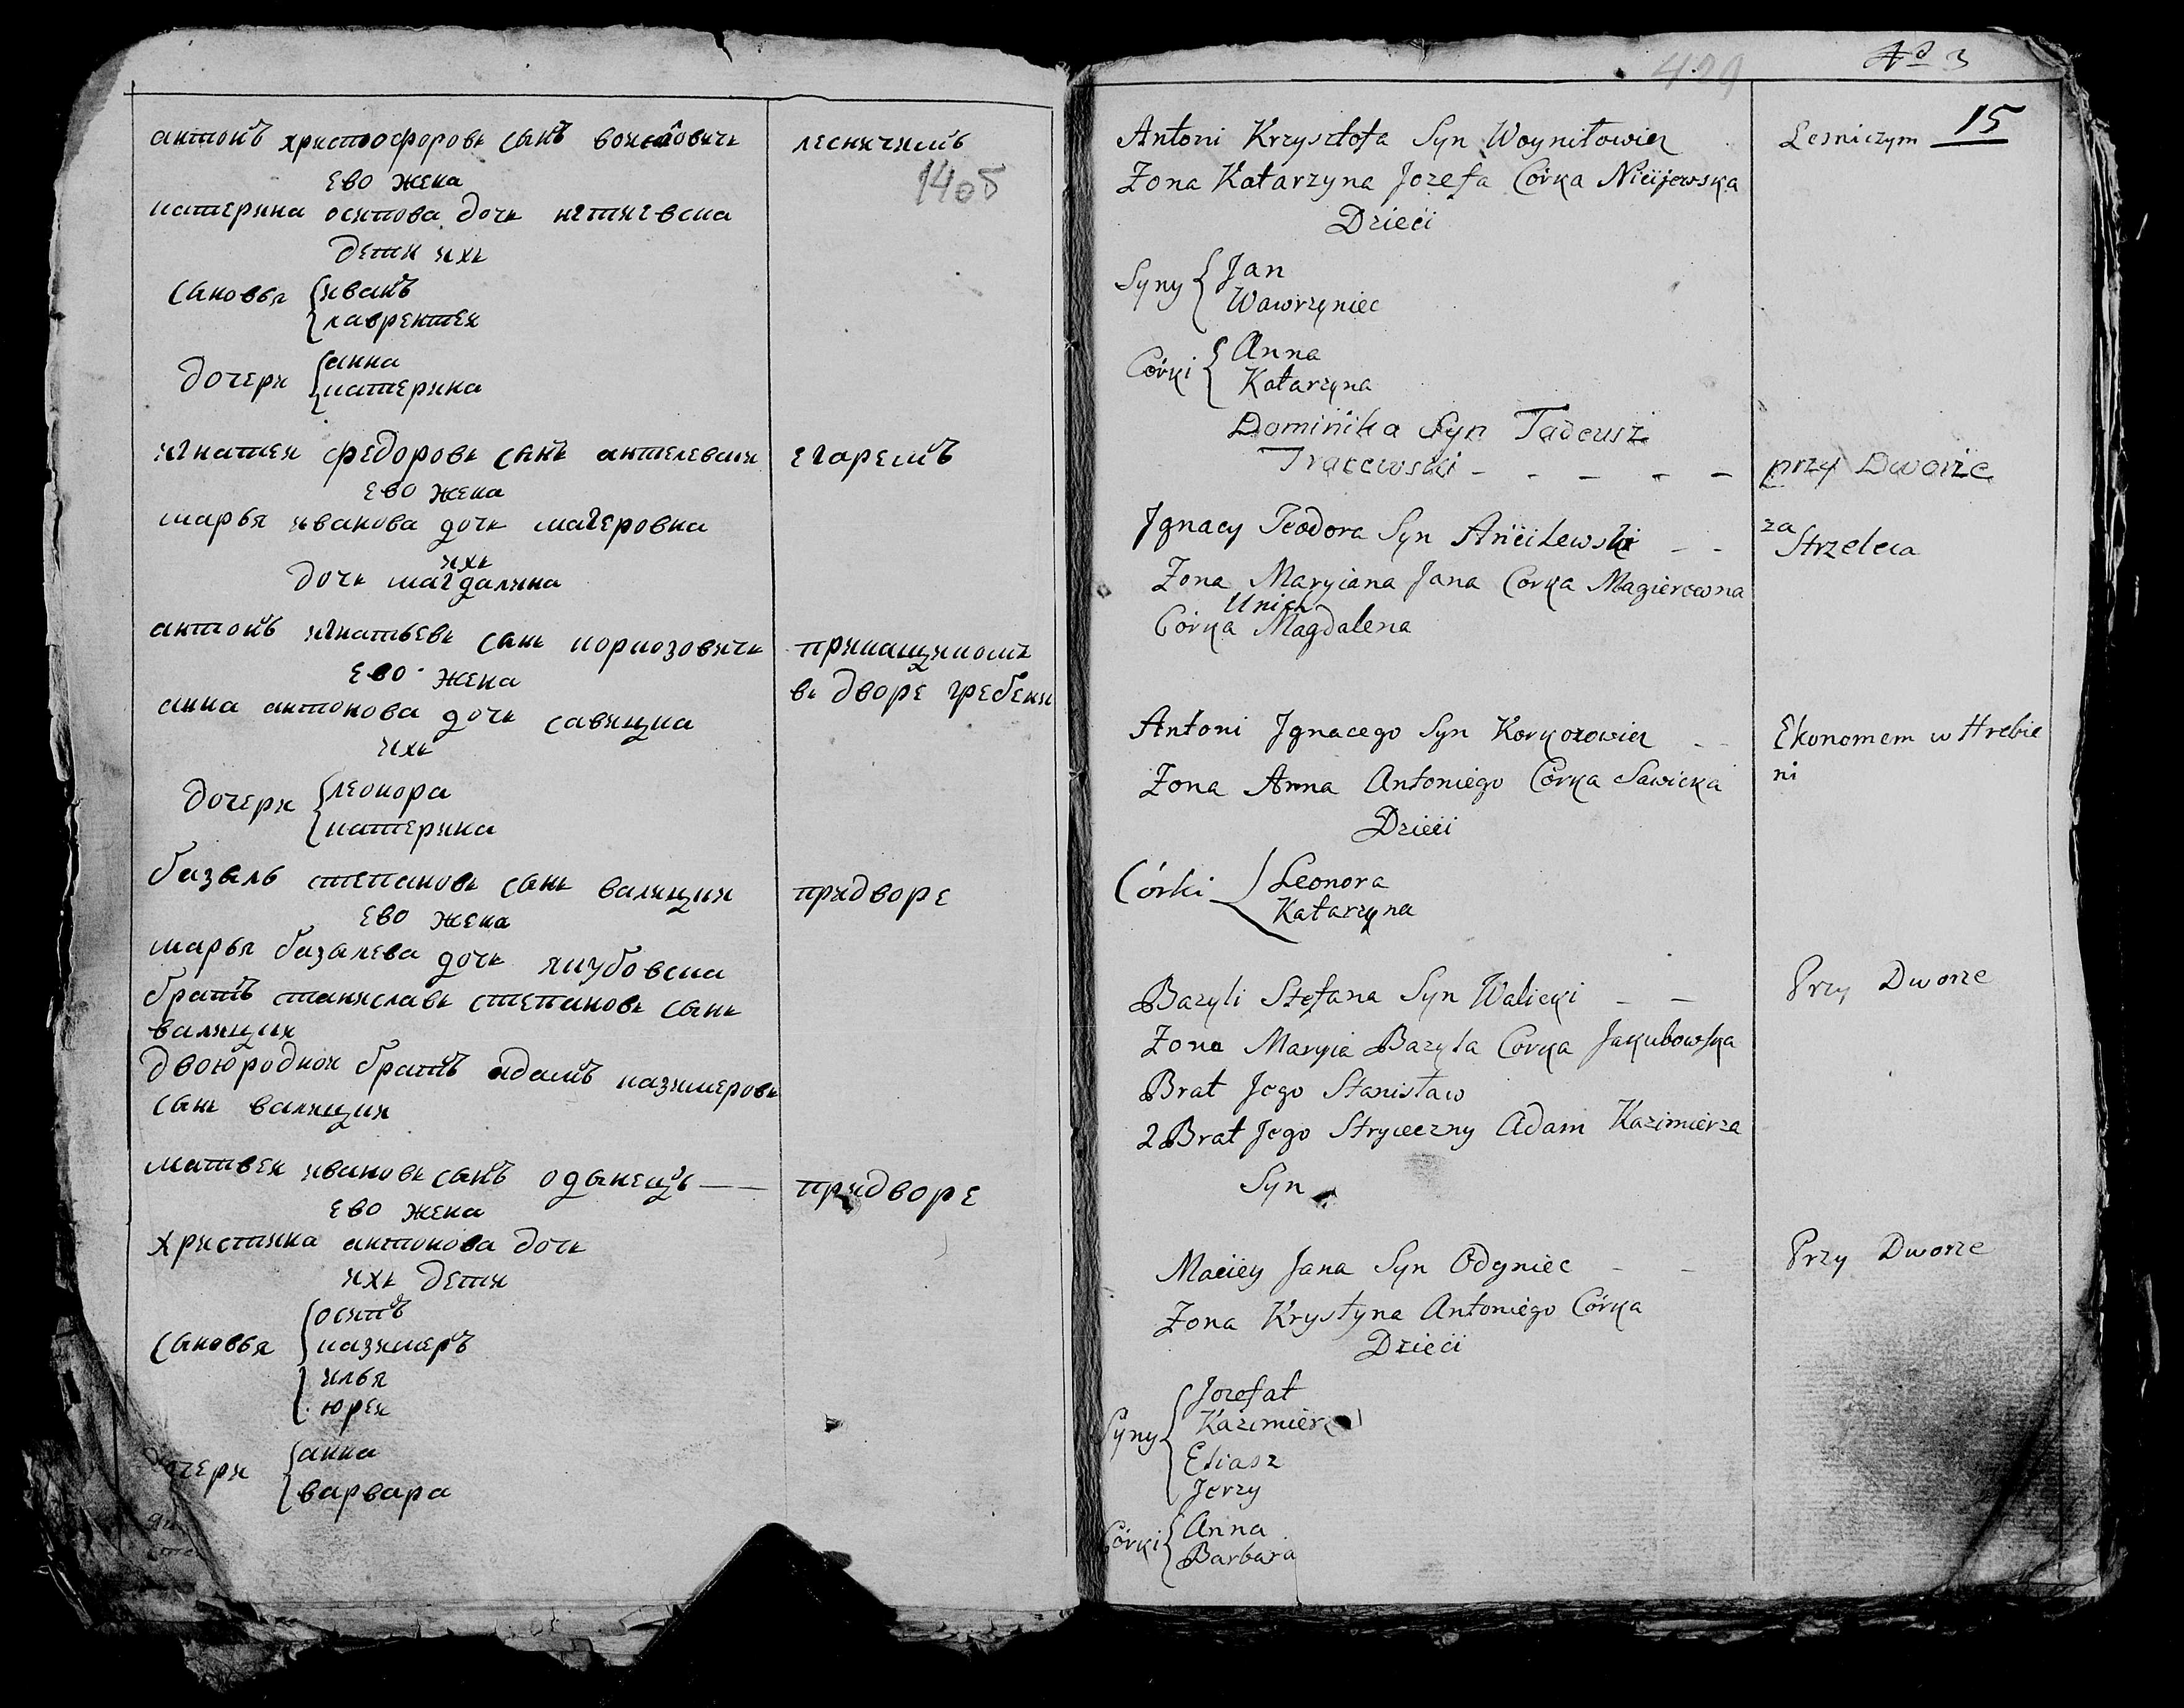 антонъ христофоровъ сынъ войниловичъ лесничимъ
1405
ево жена
катерина осипова дочь нетиевска
дети ихъ
сыновья иванъ
лаврентей
дочери анна
катерина
игнатей федоровъ сынъ антелевски егаремъ
ево жена
марья иванова дочь магеровна
ихъ
дочь магдалина
антонъ игнатьевъ сынъ коркозовичъ прикащикомъ
ево жена въ дворе гребени
анна антонова дочь савицка
ихъ
дочери леонора
катерина
базыль степановъ сынъ валицки придворе
ево жена
марья базылева дочь якубовска
братъ станиславъ степановъ сынъ
валицки
двоюродной братъ адамъ казимеровъ
сынъ валицки
матвей ивановъ сынъ одынецъ — — придворе
ево жена
христина антонова дочь
ихъ дети
сыновья осипъ
казимеръ
илья
юрей
дочери анна
варвара
429
No 3
15
Antoni Krzysztofa Syn Woyniłowicz Lesniczym
Zona Katarzyna Jozefa Córka Nicijewska
Dzieci
Syny Jan
Wawrzyniec
Córki Anna
Katarzyna
Dominika Syn Tadeusz
Tracewski - - - - - przy Dworze
Jgnacy Teodora Syn Ancilewski - - za Strzelca
Zona Maryiana Jana Corka Magierowna
Unich
Córka Magdalena
Antoni Jgnacego Syn Korkozowicz - - Ekonomem w Hrebie
Zona Anna Antoniego Córka Sawicka ni
Dzieci
Córki Leonora
Katarzyna
Bazyli Stefana Syn Walicki - - Przy Dworze
Zona Maryia Bazyla Corka Jakubowska
Brat Jego Stanisław
2 Brat Jego Stryieczny Adam Kazimierza
Syn
Maciey Jana Syn Odyniec - - Przy Dworze
Zona Krystyna Antoniego Córka
Dzieci
Syny Jozefat
Kazimierz
Eliasz
Jerzy
Córki Anna
Barbara